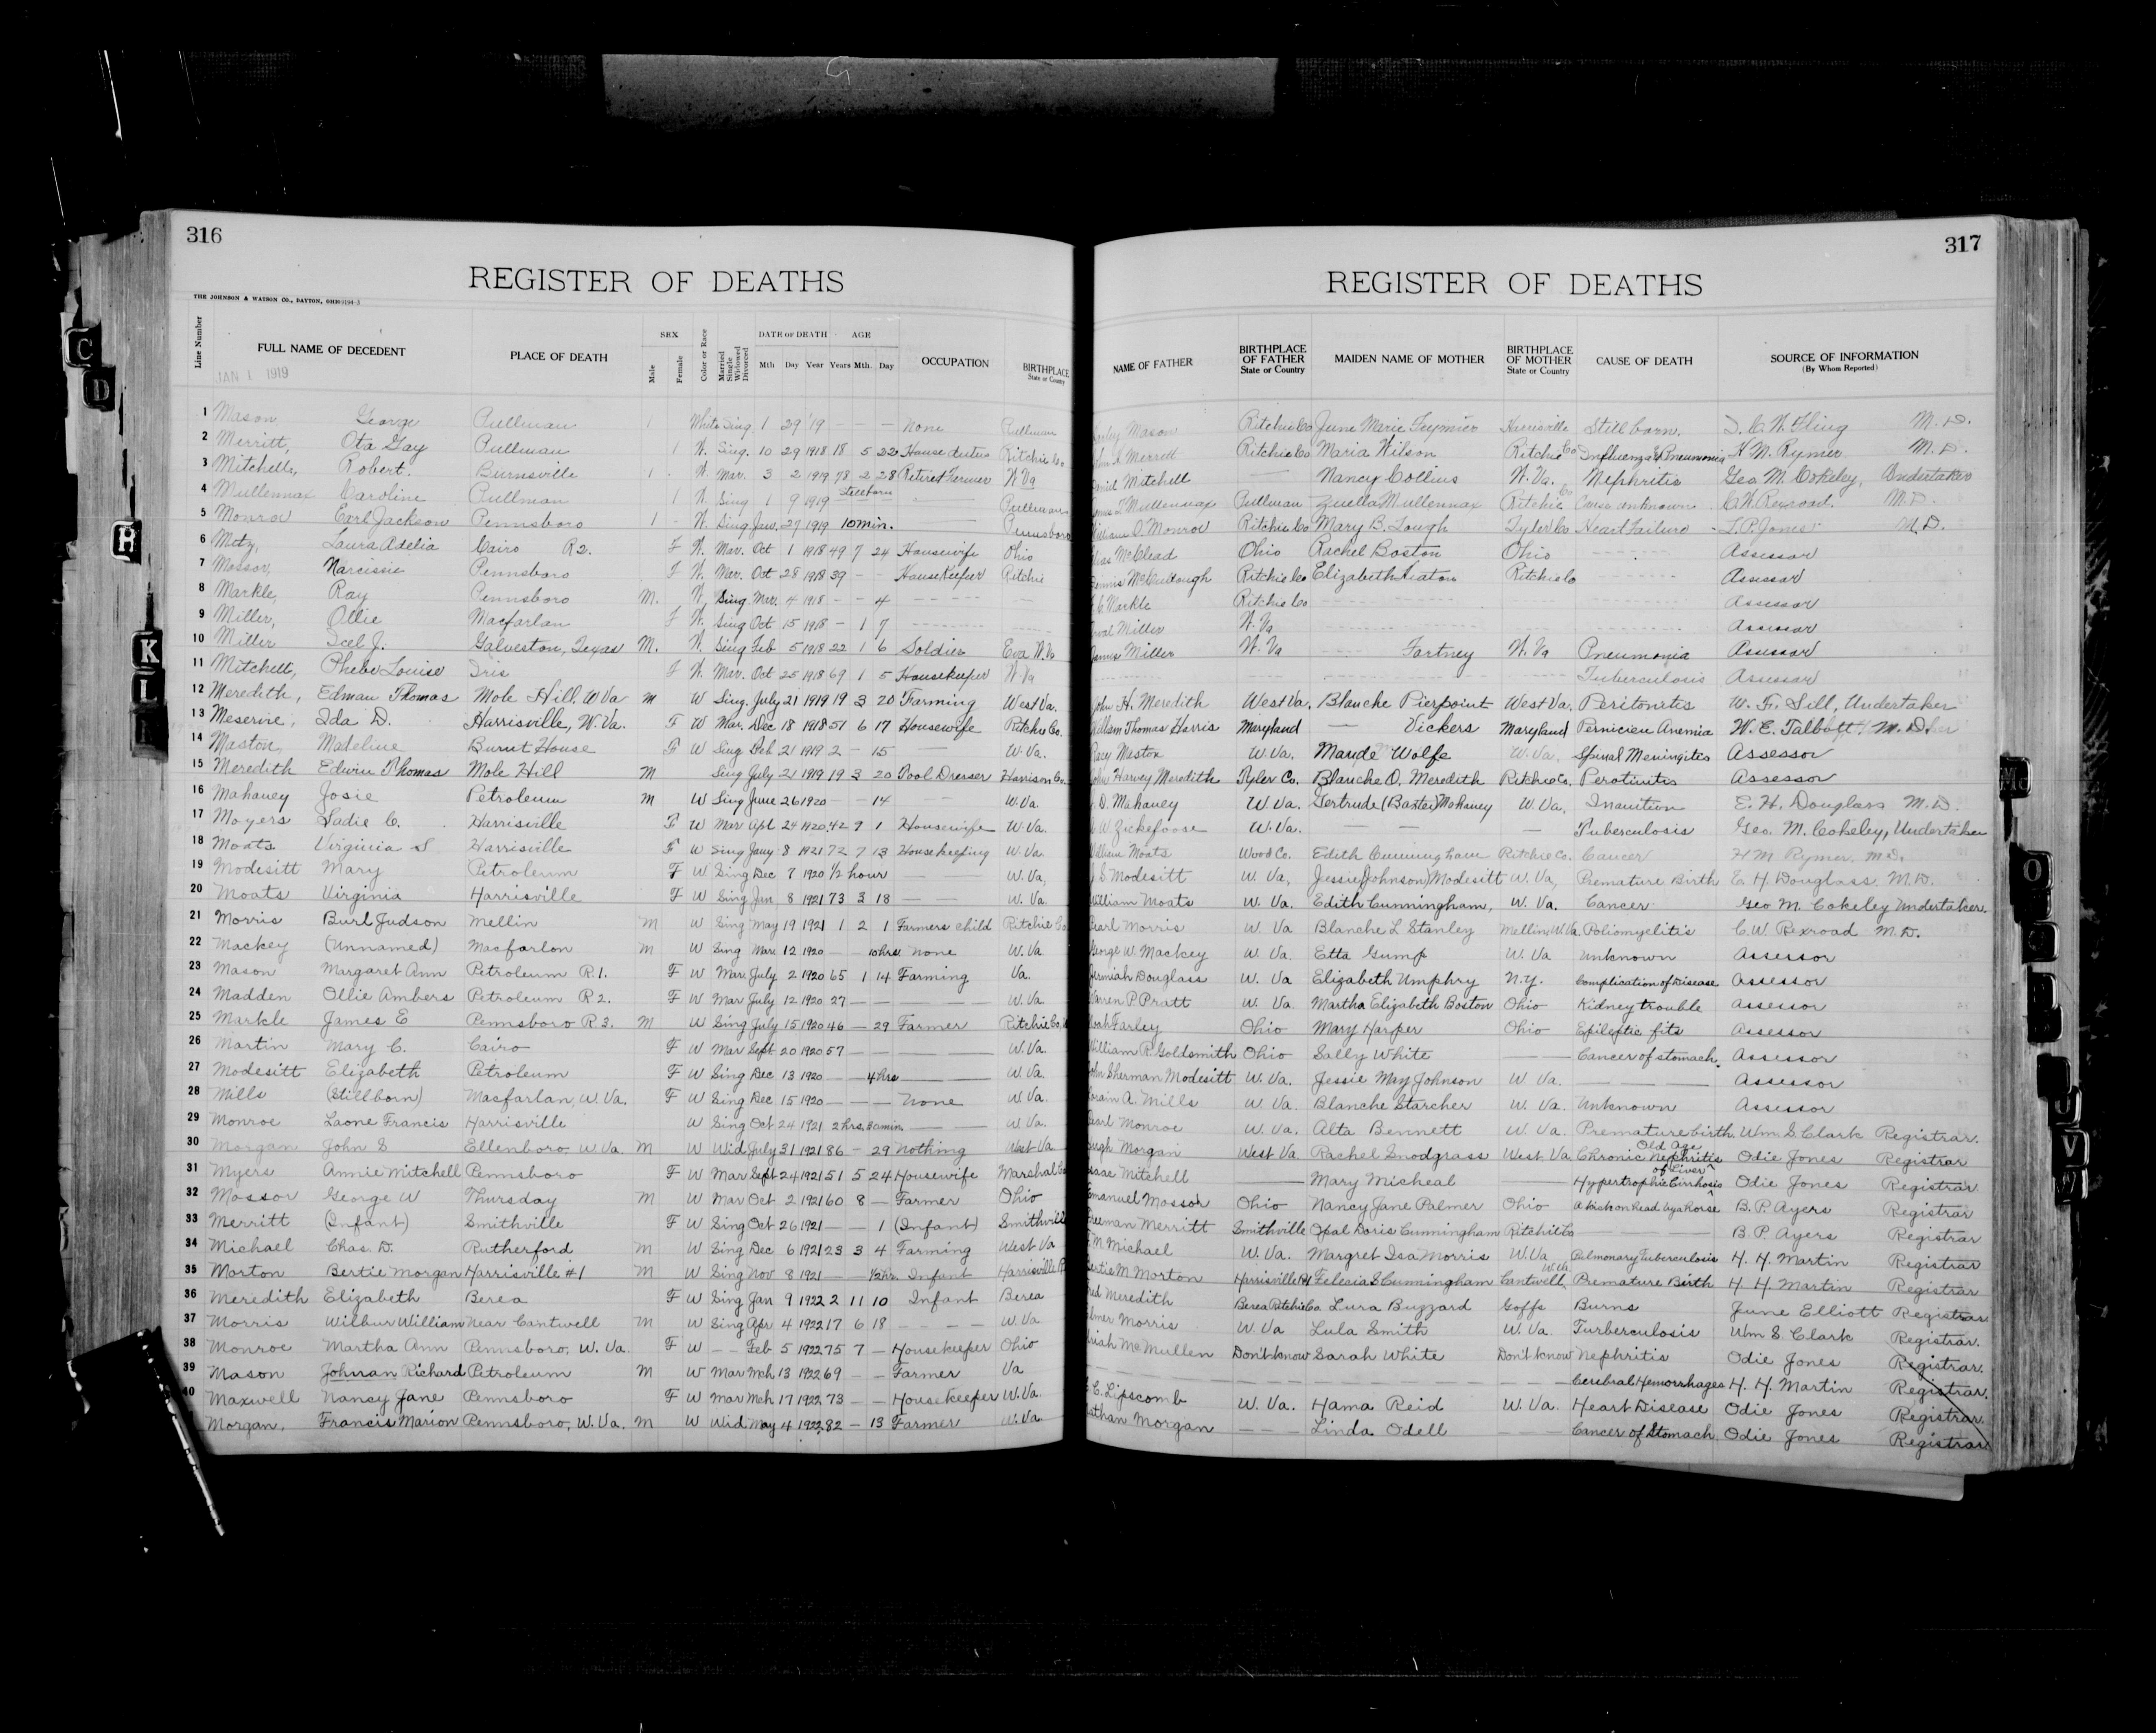 316
REGISTER OF DEATHS
THE JOHNSON & WATSON CO., DAYTON, OHIO
Line Number FULL NAME OF DECEDENT PLACE OF DEATH SEX Male Female Color or Race Married Single Widowed Divorced DATE OF DEATH Mth Day Year AGE Years Mth. Day OCCUPATION BIRTHPLACE State or Country
JAN 1 1919
1 Mason George Pullman 1 White Sing. 1 29 '19 - - - None Pullman
2 Merritt, Ota Gay Pullman 1 W. Sing. 10 29 1918 18 5 22 House duties Ritchie Co
3 Mitchell, Robert. Burnsville 1 W. Mar. 3 2 1919 78 2 28 Retired Farmer W Va
4 Mullennax Caroline Pullman 1 W. Sing 1 9 1919 Stillborn Pullman
5 Monroe Earl Jackson Pennsboro 1 W. Sing Jan. 27 1919 10 min. Pennsboro
6 Metz, Laura Adelia Cairo R2. F W. Mar. Oct 1 1918 49 7 24 Housewife Ohio
7 Mossor, Narcissie Pennsboro F W. Mar. Oct 28 1918 39 - - HouseKeeper Ritchie
8 Markle, Ray Pennsboro M. W. Sing. 4 1918 - - 4
9 Miller, Ollie Macfarlan F W. Sing Oct 15 1918 - 1 7
10 Miller Icel J. Galveston, Texas M. W. Sing Feb 5 1918 22 1 6 Soldier Eva W. Va
11 Mitchell, Phebe Louise Iris F W. Mar. Oct 25 1918 69 1 5 Housekeeper W. Va
12 Meredith, Edman Thomas Mole Hill, W Va M W Sing. July 21 1919 19 3 20 Farming West Va.
13 Meservie, Ida D. Harrisville, W. Va. F W Mar. Dec 18 1918 51 6 17 Housewife Ritchie Co.
14 Maston, Madeline Burnt House F W Sing Feb 21 1919 2 - 15 W. Va.
15 Meredith Edwin Thomas Mole Hill M Sing July 21 1919 19 3 20 Tool Dresser Harrison Co.
16 Mahaney Josie Petroleum M W Sing June 26 1920 - - 14 W. Va.
17 Moyers Sadie C. Harrisville F W Mar Apl. 24 1920 42 9 1 Housewife W. Va.
18 Moats Virginia S Harrisville F W Sing Jany 8 1921 72 7 13 Housekeeping W. Va.
19 Modesitt Mary Petroleum F W Sing Dec 7 1920 1/2 hour W. Va,
20 Moats Virginia Harrisville F W Sing Jan 8 1921 73 3 18 - - W. Va.
21 Morris Burl Judson Mellin M W Sing May 19 1921 1 2 1 Farmers child Ritchie Co
22 Mackey (Unnamed) Macfarlon M W Sing Mar. 12 1920 - 10 hrs. None W. Va
23 Mason Margaret Ann Petroleum R1. F W Mar. July 2 1920 65 1 14 Farming Va.
24 Madden Ollie Ambers Petroleum R2. F W Mar July 12 1920 27 - - W. Va.
25 Markle James E Pennsboro R3. M W Sing July 15 1920 46 - 29 Farmer Ritchie Co.
26 Martin Mary C. Cairo F W Mar Sept 20 1920 57 - - W. Va.
27 Modesitt Elizabeth Petroleum F W Sing Dec 13 1920 - - 4 hrs W Va.
28 Mills (Stillborn) Macfarlan, W. Va. F W Sing Dec 15 1920 - - - None W. Va.
29 Monroe Laone Francis Harrisville W Sing Oct 24 1921 2 hrs. 30 min. W. Va.
30 Morgan John S Ellenboro, W. Va. M W Wid July 31 1921 86 - 29 Nothing West Va
31 Myers Annie Mitchell Pennsboro F W Mar Sept 24 1921 51 5 24 Housewife Marshal Co
32 Mossor George W Thursday M W Mar Oct 2 1921 60 8 - Farmer Ohio
33 Merritt (Infant) Smithville F W Sing Oct 26 1921 - - 1 (Infant) Smithville
34 Michael Chas. D. Rutherford M W Sing Dec 6 1921 23 3 4 Farming West Va
35 Morton Bertie Morgan Harrisville #1 M W Sing Nov 8 1921 - 1/2 hr. Infant Harrisville
36 Meredith Elizabeth Berea F W Sing Jan 9 1922 2 11 10 Infant Berea
37 Morris Wilbur William Near Cantwell M W Sing Apr 4 1922 17 6 18 - - - - W. Va
38 Monroe Martha Ann Pennsboro, W. Va. F W - - Feb 5 1922 75 7 - Housekeeper Ohio
39 Mason Johnan Richard Petroleum M W Mar Mch 13 1922 69 - - Farmer Va
40 Maxwell Nancy Jane Pennsboro F W Mar Mch 17 1922 73 - - Housekeeper W. Va.
Morgan, Francis Marion Pennsboro, W. Va. M W Wid May 4 1922 82 - 13 Farmer W. Va.
317
REGISTER OF DEATHS
NAME OF FATHER BIRTHPLACE OF FATHER State or Country MAIDEN NAME OF MOTHER BIRTHPLACE OF MOTHER State or Country CAUSE OF DEATH SOURCE OF INFORMATION (By Whom Reported)
Mason Ritchie Co June Marie Harrisville Still born. M. D.
Merritt Ritchie Co Maria Wilson Ritchie Co Influenza & Pneumonia H M. Rymer M. D.
Mitchell Nancy Collins W. Va. Nephritis Geo M. Cokeley, Undertaker
Mullennax Pullman Zuella Mullennax Ritchie Co Cause unknown C. W. Rexroad. M. D.
William O. Monroe Ritchie Co Mary B. Lough Tyler Co Heart Failure L. P. Jones M. D.
McClead Ohio Rachel Boston Ohio Assessor
McCullough Ritchie Co Elizabeth Ritchie Co Assessor
Markle Ritchie Co Assessor
Miller W. Va Assessor
James Miller W. Va Fortney W. Va Pneumonia Assessor
Tuberculosis Assessor
John H. Meredith West Va. Blanche Pierpoint West Va. Peritonitis Undertaker
William Thomas Harris Maryland Vickers Maryland Pernicien Anemia W. E. Talbott, M. D.
Maston W. Va. Maude Wolfe W. Va. Spinal Meningitis Assessor
John Harvey Meredith Tyler Co. Blanche O. Meredith Ritchie Co. Perotinitis Assessor
D. Mahaney W. Va. Gertrude (Baxter) Mahaney W. Va. Inanition E. H. Douglass M. D.
W Zickefoose W. Va. - - - Tuberculosis Geo. M. Cokeley, Undertaker
William Moats Wood Co. Edith Cunningham Ritchie Co. Cancer H M Rymer, M. D.
S Modesitt W. Va, Jessie (Johnson) Modesitt W. Va, Premature Birth E. H. Douglass M. D.
William Moats W. Va. Edith Cunningham, W. Va. Cancer Geo M. Cokeley Undertaker.
Morris W. Va Blanche L Stanley Mellin, W. Va Poliomyelitis C. W. Rexroad M. D.
George W. Mackey W. Va. Etta Gump W. Va Unknown Assessor
Jermiah Douglass W. Va Elizabeth Umphry N. Y. Complication of Disease Assessor
Warren P Pratt W. Va. Martha Elizabeth Boston Ohio Kidney trouble Assessor
Farley Ohio Mary Harper Ohio Epileptic fits Assessor
William R. Goldsmith Ohio Sally White Cancer of stomach. Assessor
John Sherman Modesitt W. Va. Jessie May Johnson W Va. Assessor
A. Mills W. Va. Blanche Starcher W. Va. Unknown Assessor
Monroe W. Va. Alta Bennett W. Va. Premature birth Wm. S. Clark Registrar.
Morgan West Va. Rachel Snodgrass West Va. Chronic Nephritis Old Age Odie Jones Registrar
Isaac Mitchell Mary Micheal Hypertrophic Cirrhosis of Liver Odie Jones Registrar
Emanuel Mossor Ohio Nancy Jane Palmer Ohio A kick on head by a horse B. P. Ayers Registrar
Freeman Merritt Smithville Opal Doris Cunningham Ritchie Co B. P. Ayers Registrar
M Michael W. Va. Margret Isa Morris W. Va Pulmonary Tuberculosis H. H. Martin Registrar
Bertie M Morton Harrisville R1 Felecia S Cunningham Cantwell, W. Va. Premature Birth H. H. Martin Registrar
Meredith Berea Ritchie Co. Lura Buzzard Goffs Burns June Elliott Registrar
Morris W. Va Lula Smith W. Va. Turberculosis Wm S. Clark Registrar.
McMullen Don't know Sarah White Don't know Nephritis Odie Jones Registrar.
Cerebral Hemorrhages H. H. Martin Registrar.
C. Lipscomb W. Va. Hama Reid W. Va. Heart Disease Odie Jones Registrar.
Nathan Morgan - - - Linda Odell - - - Cancer of Stomach Odie Jones Registrar
C
D
H
K
L
Mc
O
V